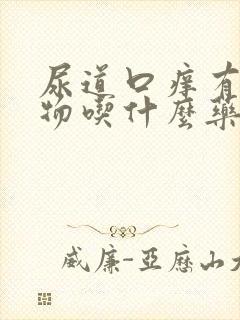 尿道口痒有
物喫什麽藥
威廉-亞歷山大